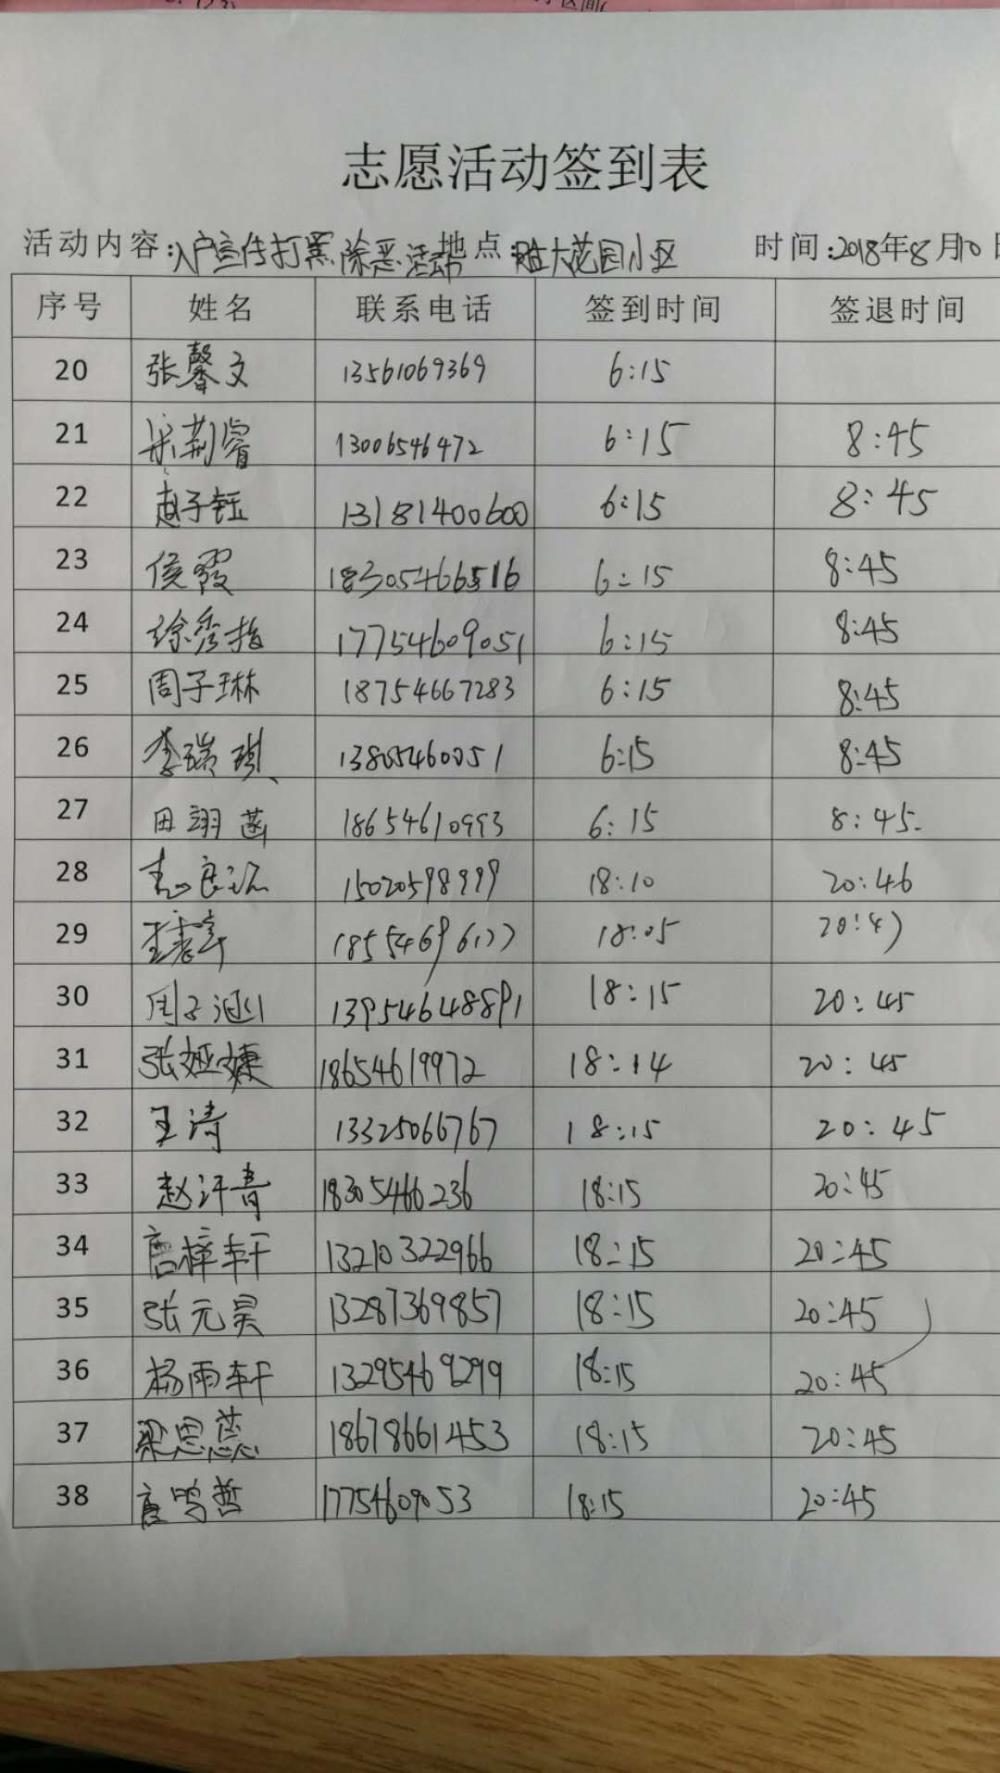 志愿活动签到表
活动内容:入户宣传打黑除恶活动 地点:胜大花园小区 时间:2018年8月10日
序号 姓名 联系电话 签到时间 签退时间
20 张馨文 13561069369 6:15
21 宋荆睿 13006546472 6:15 8:45
22 赵子钰 13181400600 6:15 8:45
23 侯霞 18305466516 6:15 8:45
24 徐秀指 17754609051 6:15 8:45
25 周子琳 18754667283 6:15 8:45
26 李瑞琪 13805460051 6:15 8:45
27 田翊菡 18654610993 6:15 8:45.
28 15020598999 18:10 20:46
29 18554696177 18:05 20:47
30 周子涵 13954648891 18:15 20:45
31 张娅婕 18654619972 18:14 20:45
32 王涛 13325066767 18:15 20:45
33 赵汗青 18305466236 18:15 20:45
34 唐梓轩 13210322966 18:15 20:45
35 张元昊 13287369857 18:15 20:45
36 杨雨轩 13295469299 18:15 20:45
37 梁思蕊 18678661453 18:15 20:45
38 唐鸣哲 17754609053 18:15 20:45